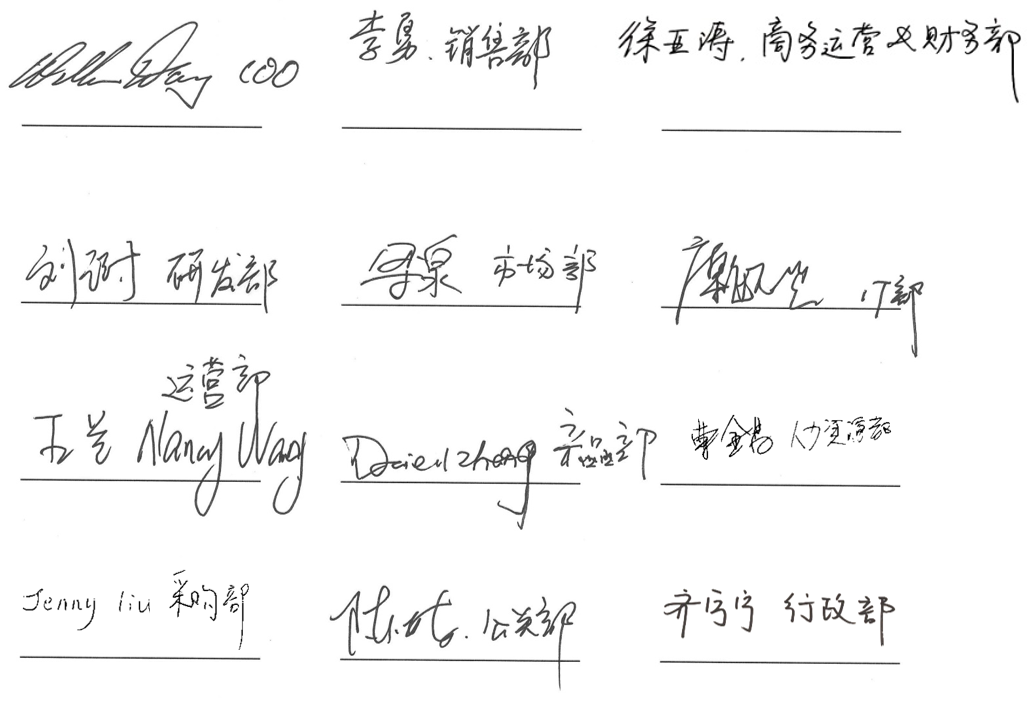 COO
李勇、销售部
徐亚涛、商务运营及财务部
刘 研发部
泉 市场部
IT部
运营部
王兰 Nancy Wang
Zheng 产品部
曹金 人力资源部
Jenny liu 采购部
陈 公关部
齐宁宁 行政部